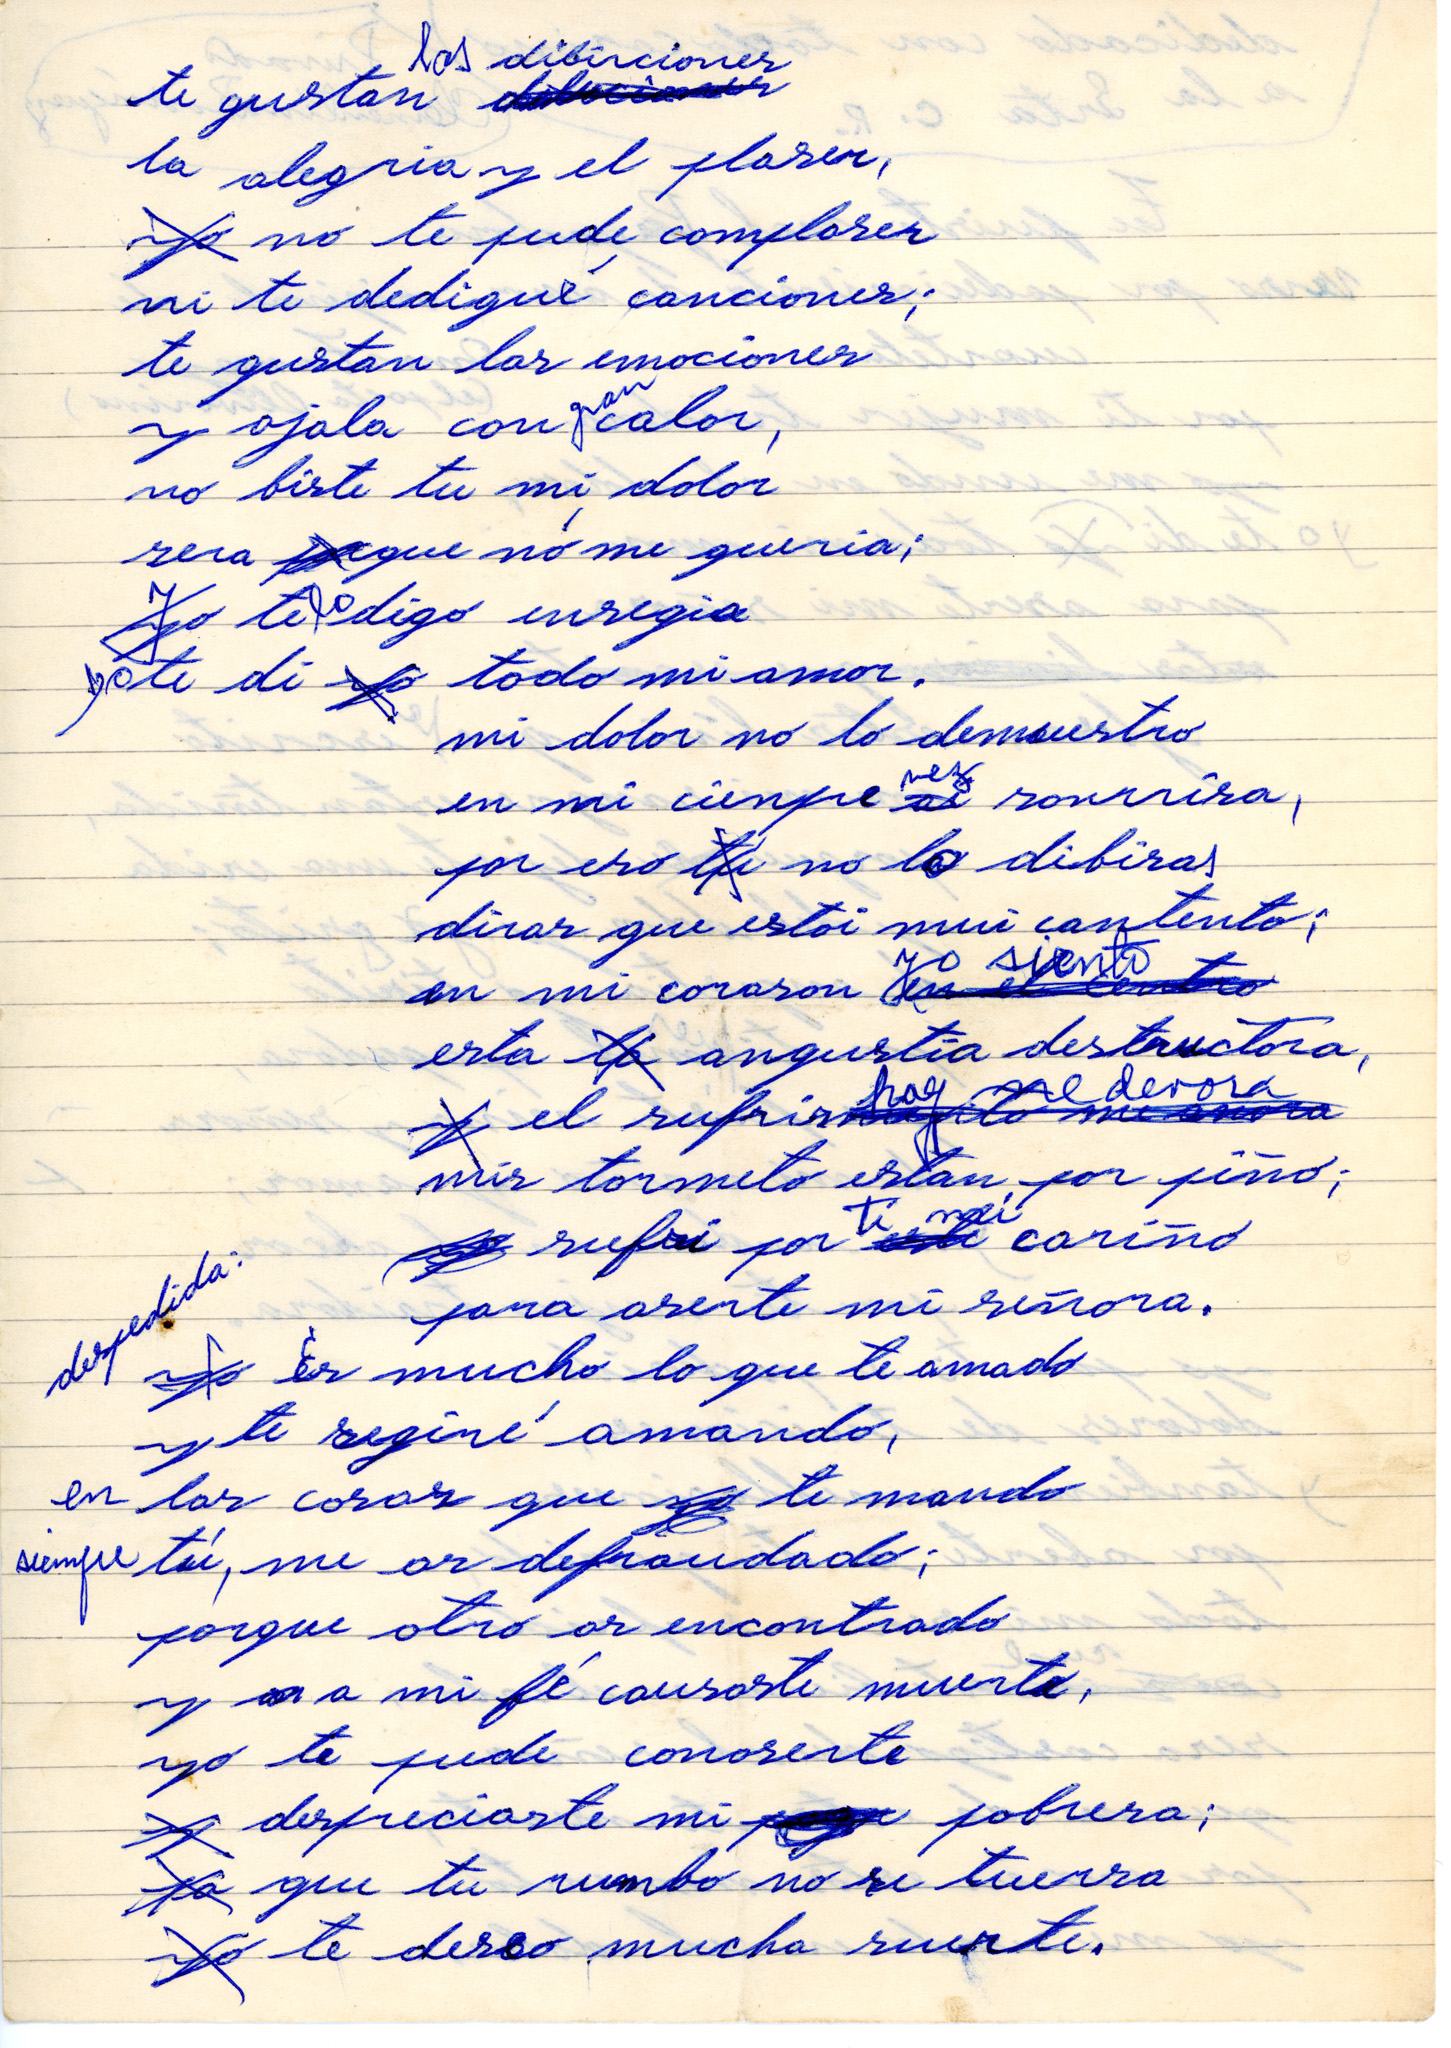 te gustan los dibirciones
la alegria y el plaser,
no te pude complaser
ni te dediqué canciones;
te gustan las emociones
y ojala con gran calor,
no biste tu mi dolor
sera que nó me queria;
Yo te lo digo enregia
yo te di todo mi amor.
mi dolor no lo demuestro
en mi cienpre vez sonrrisa,
por eso no lo dibisas
diras que estoi mui contento;
en mi corason yo siento
esta angustia destructora,
el sufrir hoy me devora
mis tormeto estan por piño;
sufri por ti mi cariño
para aserte mi señora.
despedida:
Es mucho lo que te amado
y te segiré amando,
en las cosas que te mando
siempre tú, me as defraudado;
porque otro as encontrado
y a mi fé causaste muerte,
yo te pude conoserte
despreciaste mi pobresa;
que tu rumbo no se tuersa
te deseo mucha suerte.